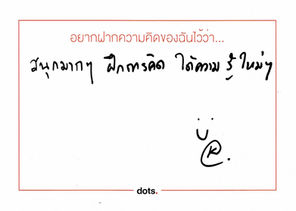 อยากฝากความคิดของฉันไว้ว่า...
สนุกมากๆ ฝึกการคิด ได้ความรู้ใหม่ๆ
dots.